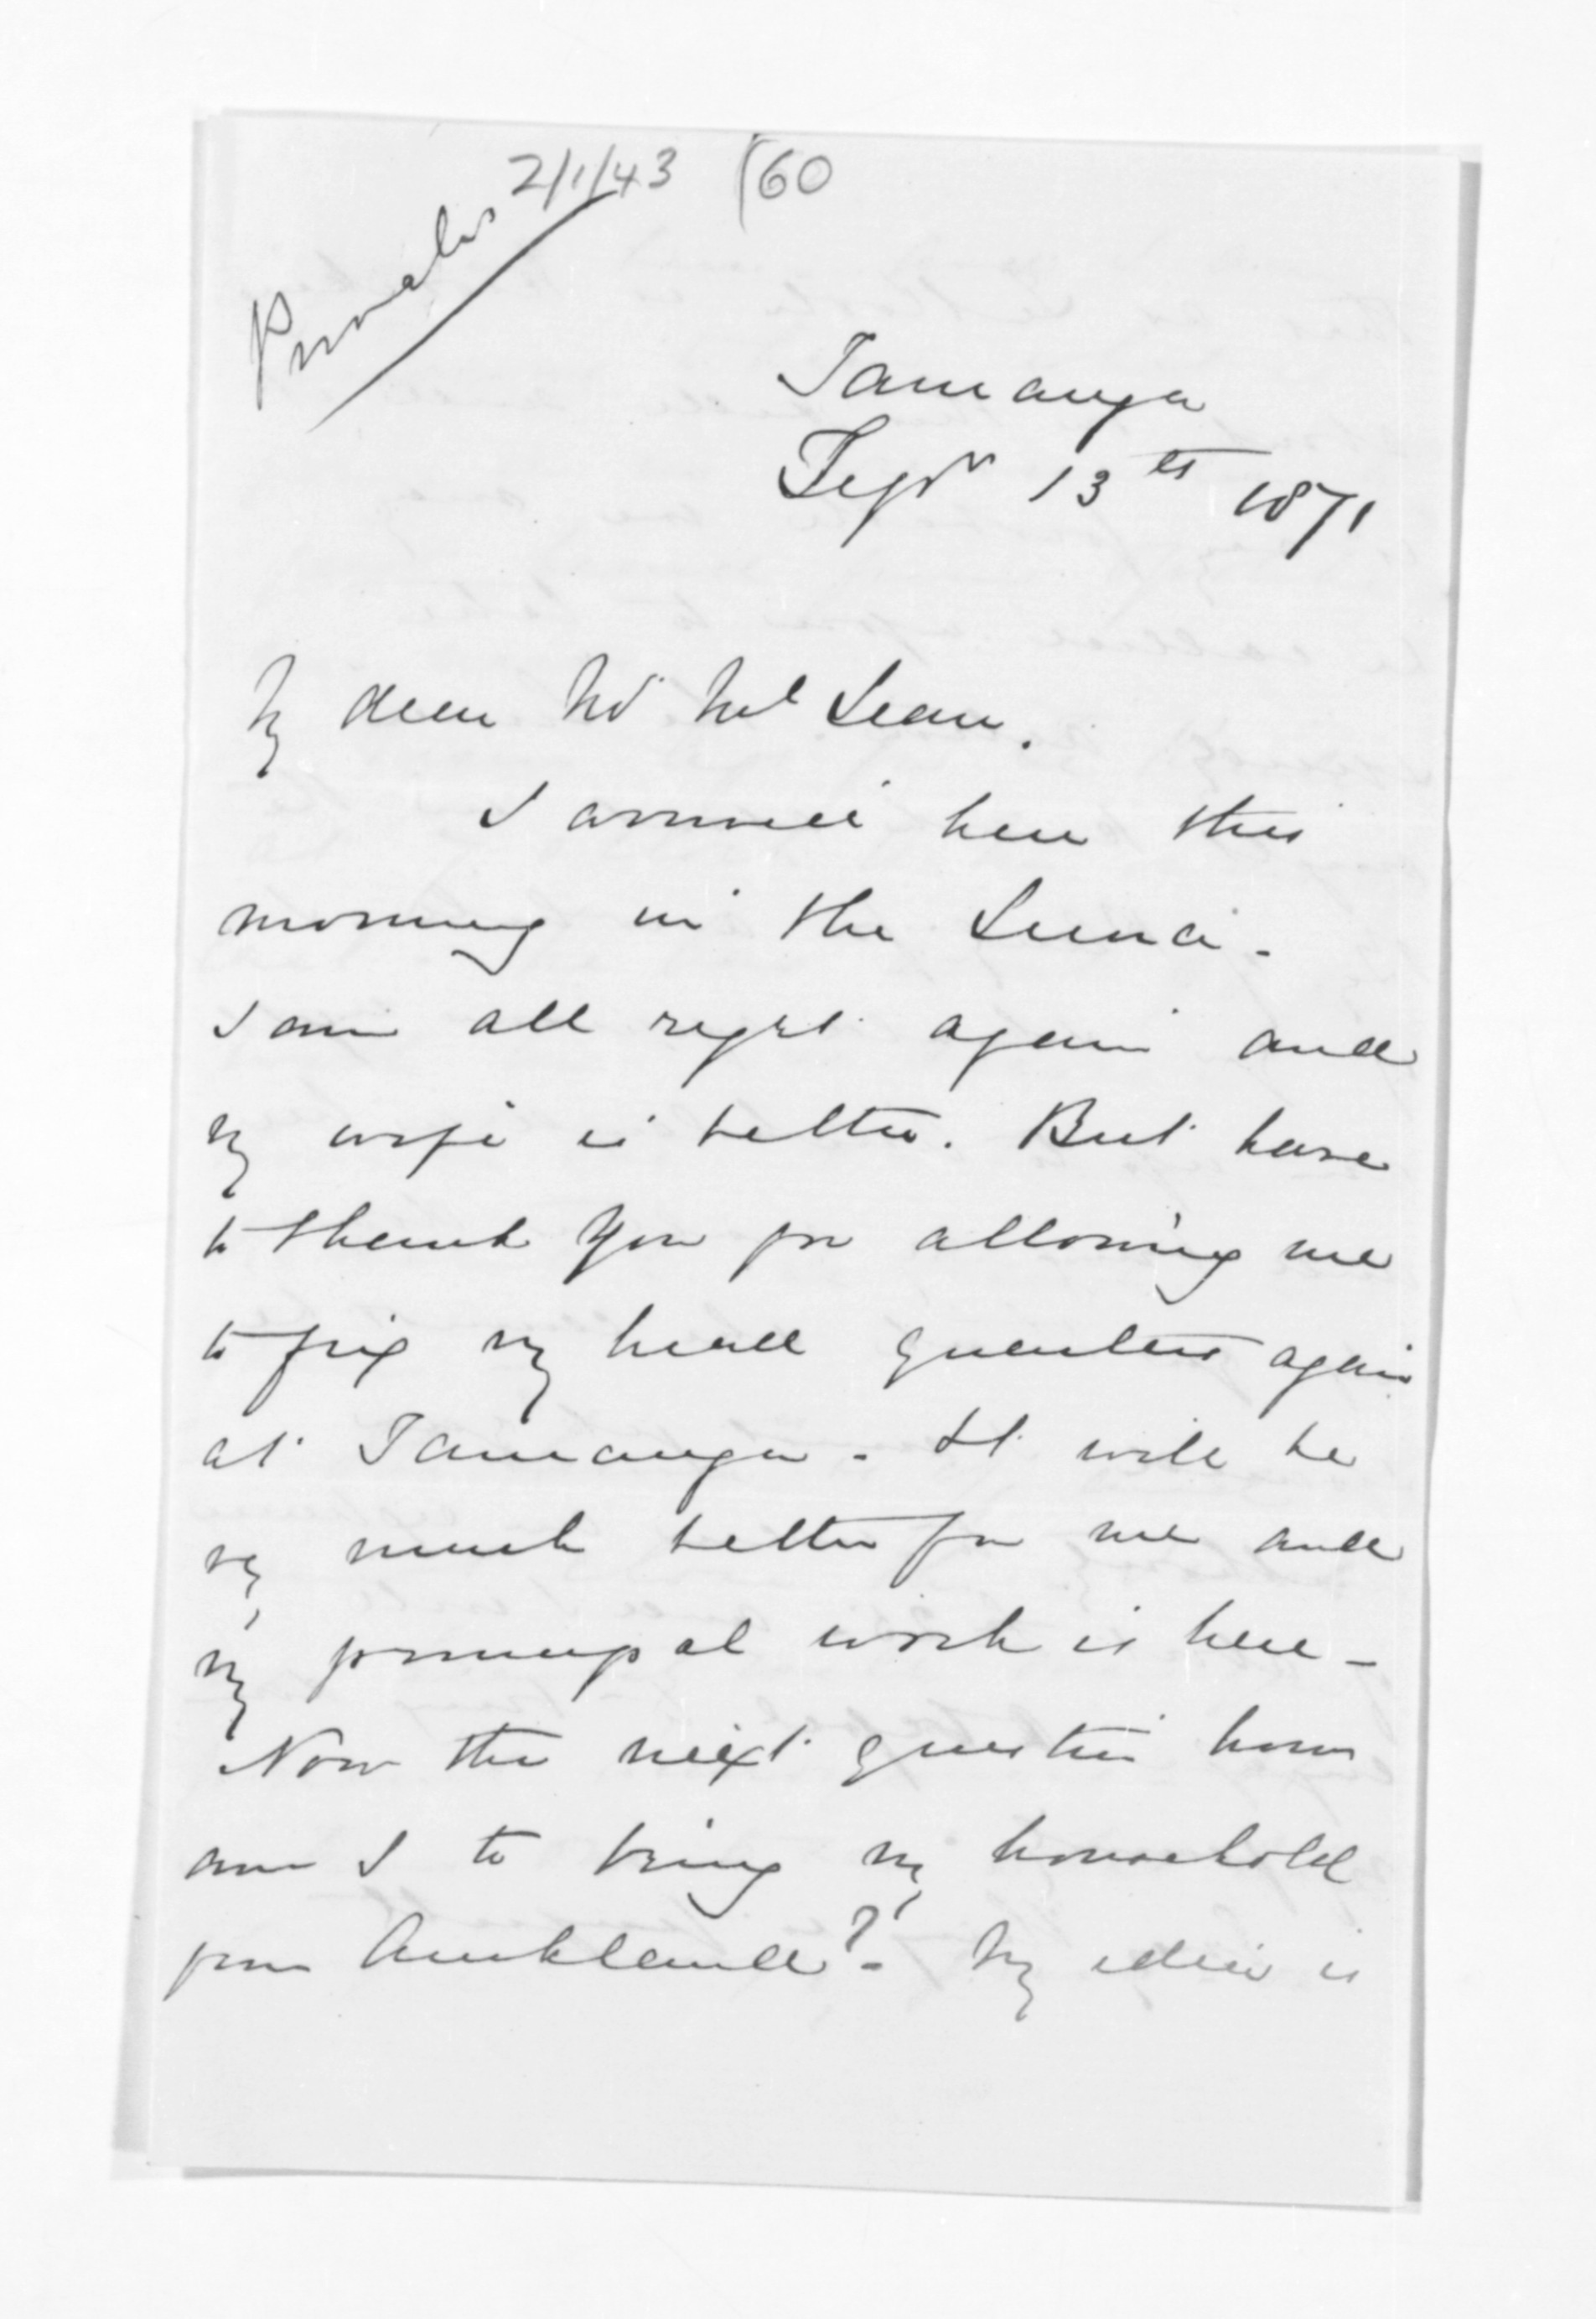 2/1/43 (60
Private
Tauranga
Sepr 13th 1871
My dear Mr McLean.
I arrived here this
morning in the Luna.
I am all right again and
my wife is better. But have
to thank you for allowing me
to fix my head quarters again
at Tauranga - It will be
very much better for me and
my principal work is here -
Now the next question how
am I to bring my household
from Auckland? - My idea is